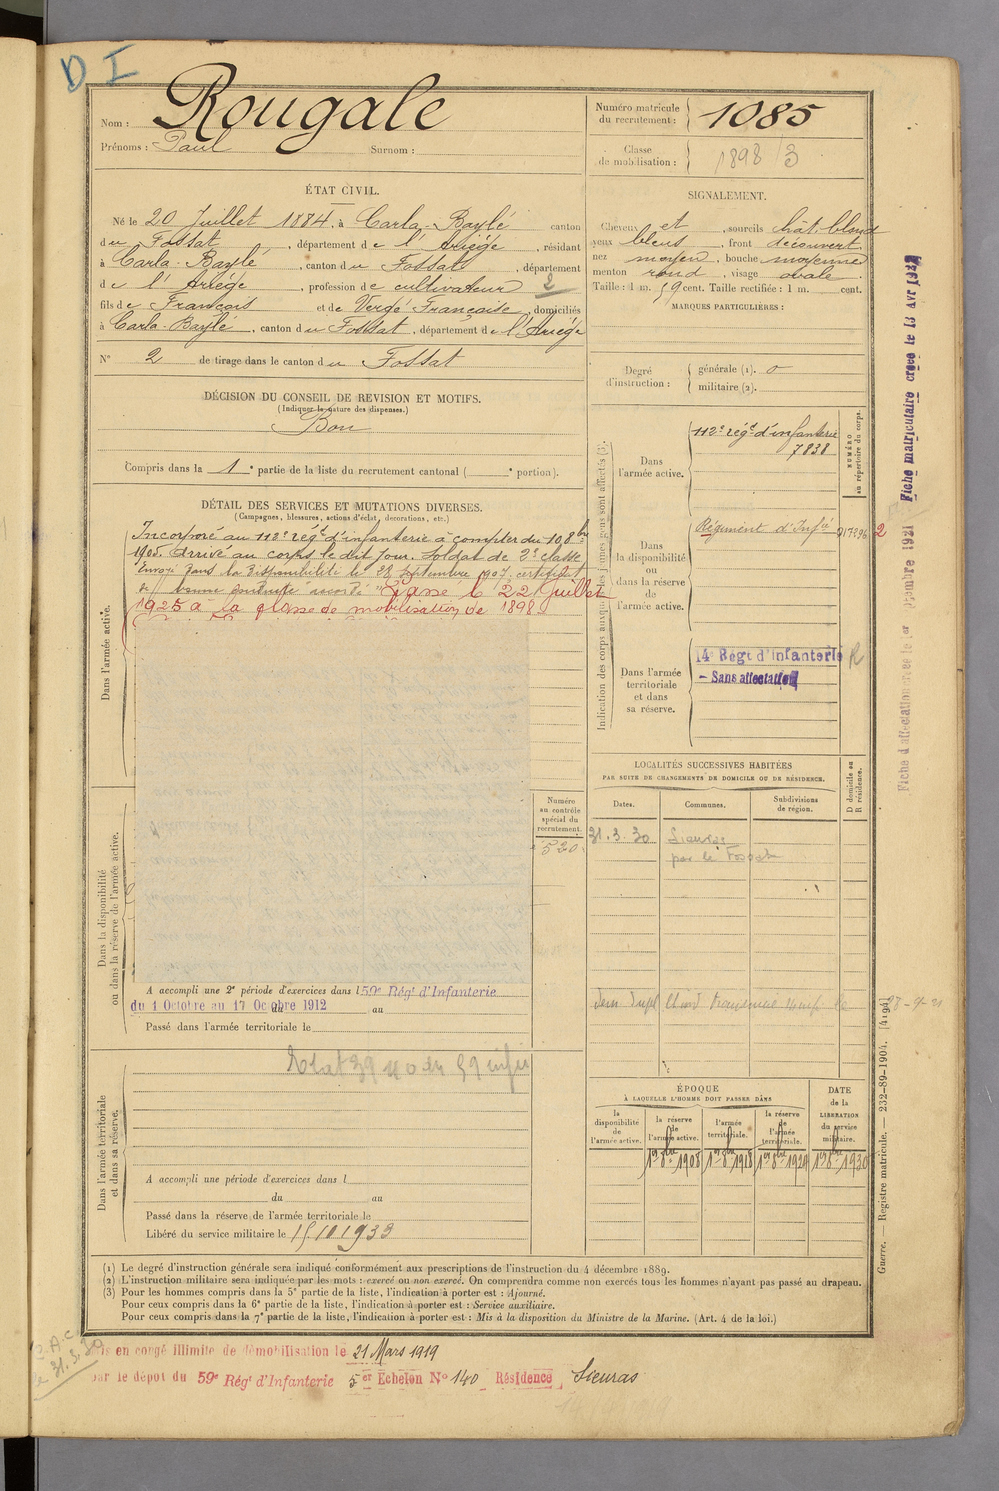 D I
Nom : Rougale
Prénoms : Paul Surnom :
Numéro matricule du recrutement : 1085
Classe de mobilisation : 1898/3
ÉTAT CIVIL.
Né le 20 Juillet 1884, à Carla-Baylé canton
du Fossat, département de l'Ariège, résidant
à Carla-Baylé, canton du Fossat, département
de l'Ariège, profession de cultivateur 2
fils de François et de Vergé Françoise, domiciliés
à Carla-Baylé, canton du Fossat, département de l'Ariège
N° 2 de tirage dans le canton du Fossat
SIGNALEMENT.
Cheveux et , sourcils chât-blond
yeux bleus , front découvert
nez moyen , bouche moyenne
menton rond , visage ovale
Taille : 1 m. 59 cent. Taille rectifiée : 1 m. cent.
MARQUES PARTICULIÈRES :
Degré d'instruction : générale (1). 0
militaire (2).
DÉCISION DU CONSEIL DE REVISION ET MOTIFS.
(Indiquer la nature des dispenses.)
Bon
Compris dans la 1e partie de la liste du recrutement cantonal ( e portion).
DÉTAIL DES SERVICES ET MUTATIONS DIVERSES.
(Campagnes, blessures, actions d'éclat, décorations, etc.)
Dans l'armée active.
Incorporé au 112e rég.t d'infanterie à compter du 10 8bre
1905. Arrivé au corps le dit jour. Soldat de 2e classe
Envoyé dans la disponibilité le 28 Septembre 1907. certificat
de bonne conduite accordé Passe le 22 juillet
1925 à la classe de mobilisation de 1898
Dans la disponibilité ou dans la réserve de l'armée active.
Numéro au contrôle spécial du recrutement.
520
A accompli une 2e période d'exercices dans l 59e Régt d'Infanterie
du 1 Octobre au 17 Octobre 1912 du au
Passé dans l'armée territoriale le
Dans l'armée territoriale et dans sa réserve.
A accompli une période d'exercices dans l
du au
Passé dans la réserve de l'armée territoriale le
Libéré du service militaire le 15.10.1933
Indication des corps auxquels les jeunes gens sont affectés (3).
NUMÉRO au répertoire du corps.
Dans l'armée active.
112e rég.t d'infanterie
7838
Dans la disponibilité ou dans la réserve de l'armée active.
Régiment d'Infie
2
Dans l'armée territoriale et dans sa réserve.
14e Régt d'infanterie R
- Sans affectation
LOCALITÉS SUCCESSIVES HABITÉES
PAR SUITE DE CHANGEMENTS DE DOMICILE OU DE RÉSIDENCE.
D domicile ou R résidence.
Dates. Communes. Subdivisions de région.
31.3.30 Sieuras
par le Fossat
ÉPOQUE
À LAQUELLE L'HOMME DOIT PASSER DANS
DATE de la LIBÉRATION du service militaire.
la disponibilité de l'armée active.
la réserve de l'armée active.
l'armée territoriale.
la réserve de l'armée territoriale.
1er 8bre 1908 1er 8bre 1918 1er 8bre 1924 1er 8bre 1930
(1) Le degré d'instruction générale sera indiqué conformément aux prescriptions de l'instruction du 4 décembre 1889.
(2) L'instruction militaire sera indiquée par les mots : exercé ou non exercé. On comprendra comme non exercés tous les hommes n'ayant pas passé au drapeau.
(3) Pour les hommes compris dans la 5e partie de la liste, l'indication à porter est : Ajourné.
Pour ceux compris dans la 6e partie de la liste, l'indication à porter est : Service auxiliaire.
Pour ceux compris dans la 7e partie de la liste, l'indication à porter est : Mis à la disposition du Ministre de la Marine. (Art. 4 de la loi.)
is en congé illimité de démobilisation le 21 Mars 1919
par le dépôt du 59e Régt d'Infanterie 5er Echelon N° 140 Résidence Sieuras
31.3.30
Guerre. — Registre matricule. — 232-89-1904. [4194]